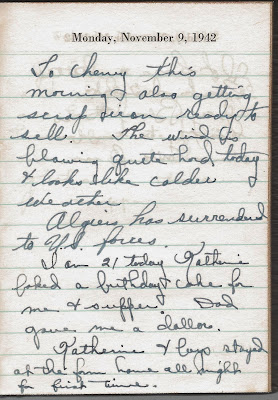 Monday, November 9, 1942
To Cheney this
morning & also getting
scrap iron ready to
sell. The wind is
blowing quite hard today
& looks like colder
weather
Algiers has surrendered
to U.S. forces.
I am 21 today Katherine
baked a birthday cake for
me & supper. Dad
gave me a dollar.
Katherine & boys stayed
at the farm home all night
for first time.